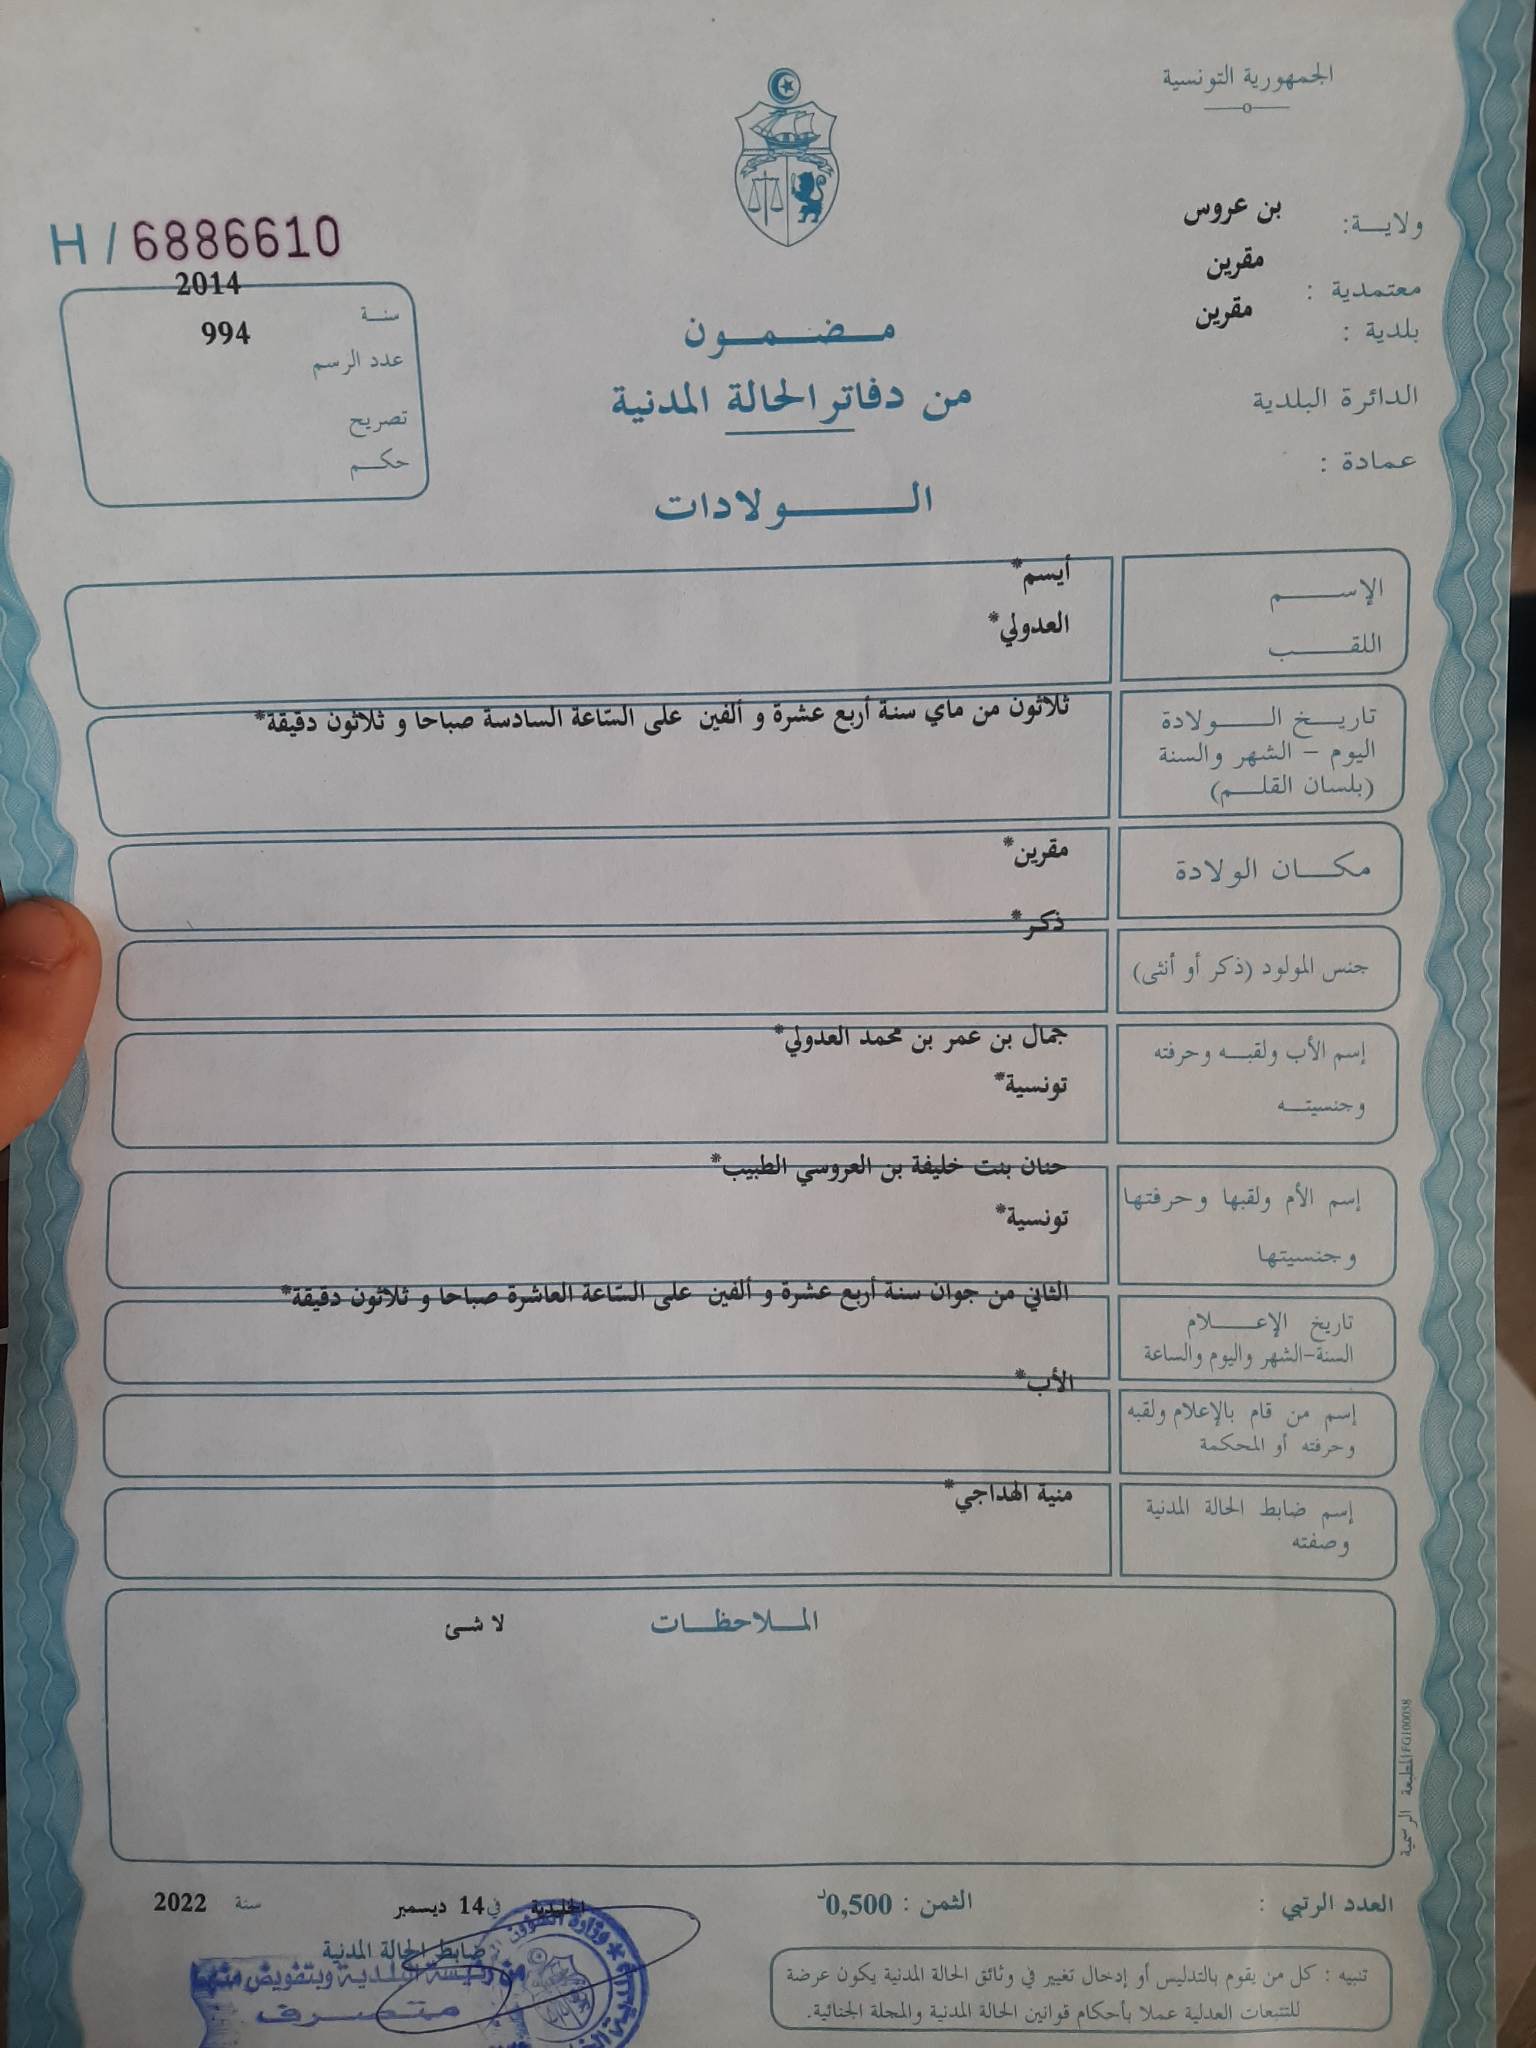 الجمهورية التونسية
ولايـة: بن عروس
معتمدية : مقرين
بلدية : مقرين
الدائرة البلدية
عمادة :
H / 6886610
سنة 2014
عدد الرسم 994
تصريح
حكم
مضمون
من دفاتر الحالة المدنية
الولادات
الإسم أيسم*
اللقب العدولي*
تاريخ الولادة ثلاثون من ماي سنة أربع عشرة و ألفين على السّاعة السادسة صباحا و ثلاثون دقيقة*
اليوم – الشهر والسنة
(بلسان القلم)
مكان الولادة مقرين*
جنس المولود (ذكر أو أنثى) ذكر*
إسم الأب ولقبه وحرفته جمال بن عمر بن محمد العدولي*
وجنسيته تونسية*
إسم الأم ولقبها وحرفتها حنان بنت خليفة بن العروسي الطبيب*
وجنسيتها تونسية*
تاريخ الإعلام الثاني من جوان سنة أربع عشرة و ألفين على السّاعة العاشرة صباحا و ثلاثون دقيقة*
السنة-الشهر واليوم والساعة
إسم من قام بالإعلام ولقبه الأب*
وحرفته أو المحكمة
إسم ضابط الحالة المدنية منية الهداجي*
وصفته
الملاحظات لا شئ
المطبعة الرسمية FG100058
العدد الرتبي :
الثمن : 0,500د
الخليدية في 14 ديسمبر سنة 2022
ضابط الحالة المدنية
عن رئيسة البلدية وبتفويض منها
متصرف
تنبيه : كل من يقوم بالتدليس أو إدخال تغيير في وثائق الحالة المدنية يكون عرضة
للتتبعات العدلية عملا بأحكام قوانين الحالة المدنية والمجلة الجنائية.